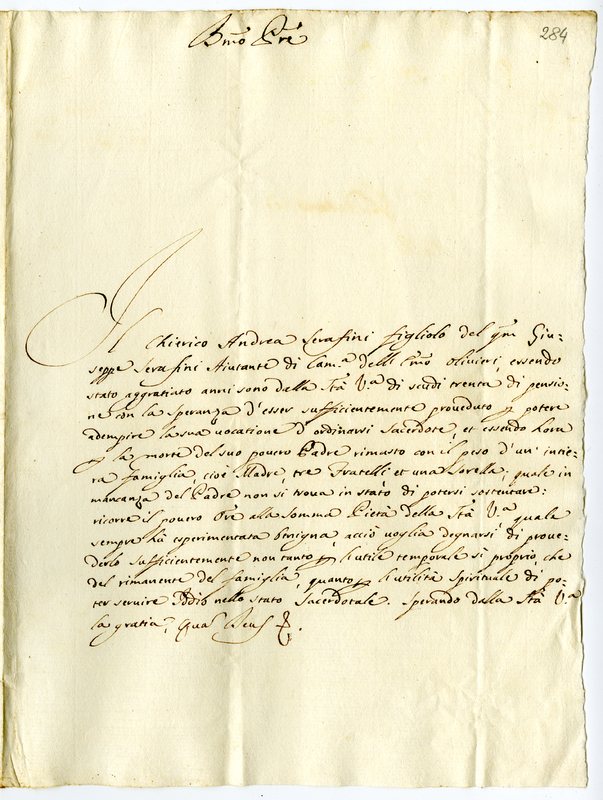 284
Bmo Pre
Il Chierico Andrea Serafini figliolo del qm Giu=
seppe Serafini Aiutante di Cam.a dell Emo Olivieri, essendo
stato aggratiato anni sono dalla Stà V.a di scudi trenta di pensio=
ne con la speranza d'esser sufficientemente proveduto p potere
adempire la sua vocatione d'ordinarsi Sacerdote, et essendo hora
p la morte del suo povero Padre rimasto con il peso d'un' intie=
ra famiglia, cioè Madre, tre Fratelli et una Sorella, quale in
mancanza del Padre non si trova in stato di potersi sostentare:
ricorre il povero Ore alla somma Pietà della Stà V.a quale
sempre hà esperimentata benigna, acciò voglia degnarsi di prove=
derlo sufficientemente non tanto p l'utile temporale sì proprio, che
del rimanente del famiglia, quanto p l'utilità spirituale di po=
ter servire Iddio nello stato Sacerdotale. Sperando dalla Stà V.a
la gratia, Qua Deus